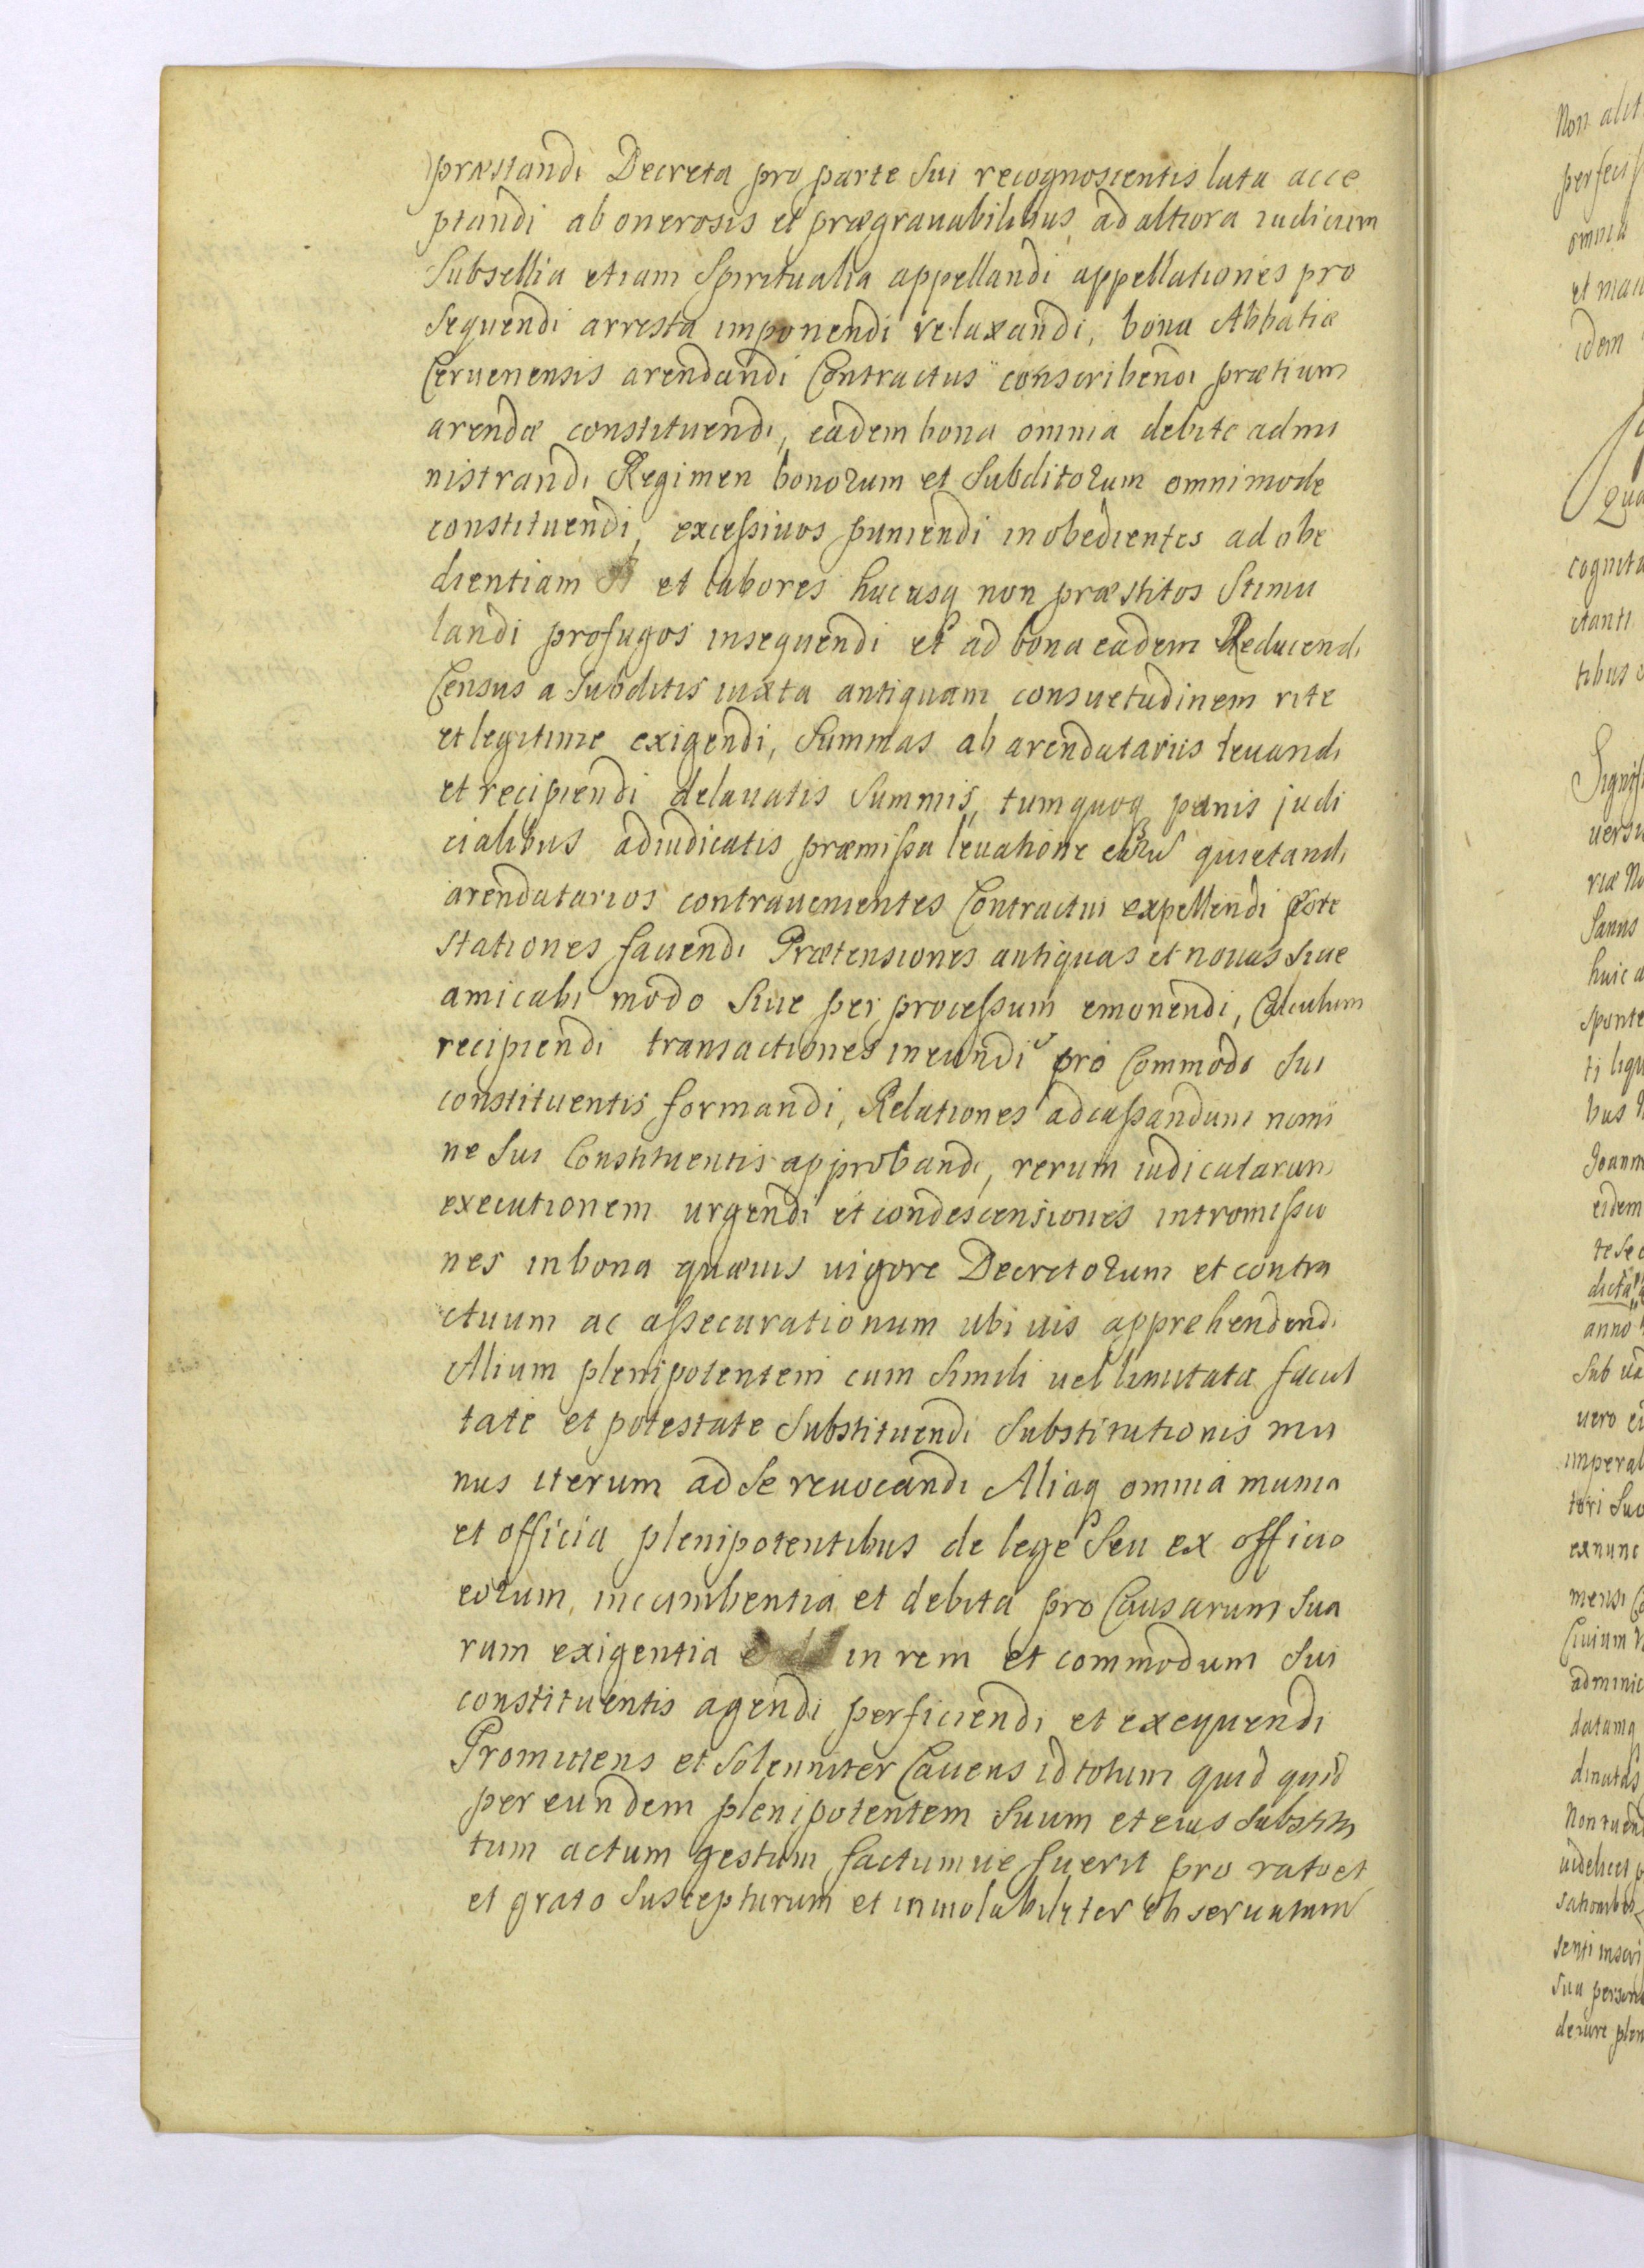 præstandi Decreta pro parte sui recognoscentis lata acce
ptandi ab onerosis et prægravabilibus ad altiora iudiciorum
Subsellia etiam Spiritualia appellandi appellationes pro
sequendi arresta imponendi relaxandi, bona Abbatiæ
Cervenensis arendandi Contractus conscribendi prætium
arendæ constituendi, eadem bona omnia debite admi
nistrandi Regimen bonorum et Subditorum omnimode
constituendi, excessivos puniendi inobedientes ad obe
dientiam et labores hucusq non præstitos Stimu
landi profugos insequendi et ad bona eadem Reducendi
Census a Subditis iuxta antiquam consuetudinem rite
et legitime exigendi, Summas ab arendatariis levandi
et recipiendi de levatis Summis, tumquoq pænis judi
cialibus adiudicatis præmissa levatione quietandi
arendatarios contravenientes Contractui expellendi Prote
stationes favendi Prætensiones antiquas et novas sive
amicabi modo sive per processum emonendi, Calculum
recipiendi transactiones ineundi pro Commodo Sui
constituentis formandi, Relationes ad cassandum nomi
ne Sui Constituentis approbandi, rerum iudicatarum
executionem urgendi et condescensiones intromissio
nes in bona quævis vigore Decretorum et contra
ctuum ac assecurationum ubi vis apprehendendi
Alium plenipotentem cum simili vel limitata facul
tate et potestate Substituendi Substitutionis mu
nus iterum ad se revocandi Aliaq omnia munia
et officia plenipotentibus de lege seu ex officio
eorum incumbentia et debita pro Causarum Sua
rum exigentia in rem et commodum Sui
constituentis agendi perficiendi et exequendi
Promittens et Solenniter Cavens id totum quid quid
per eundem plenipotentem Suum et eius Substitu
tum actum gestum factumve fuerit pro rato et
et grato Suscepturum et inviolabiliter observaturum
Non alit
perfeciss
omnia
et man
idem
Qua
cognita
itanti
tibus
Signifi
versu
riæ No
Sanus
huic a
sponte
ti liqu
bus
Joann
eidem
te se
dicta
anno
Sub
vero ei
imperal
tori suo
exnunc
mensi
Civium
adminic
datamq
Non tuen
videlicet
sationibus
senti inscri
Sua person
de iure plen